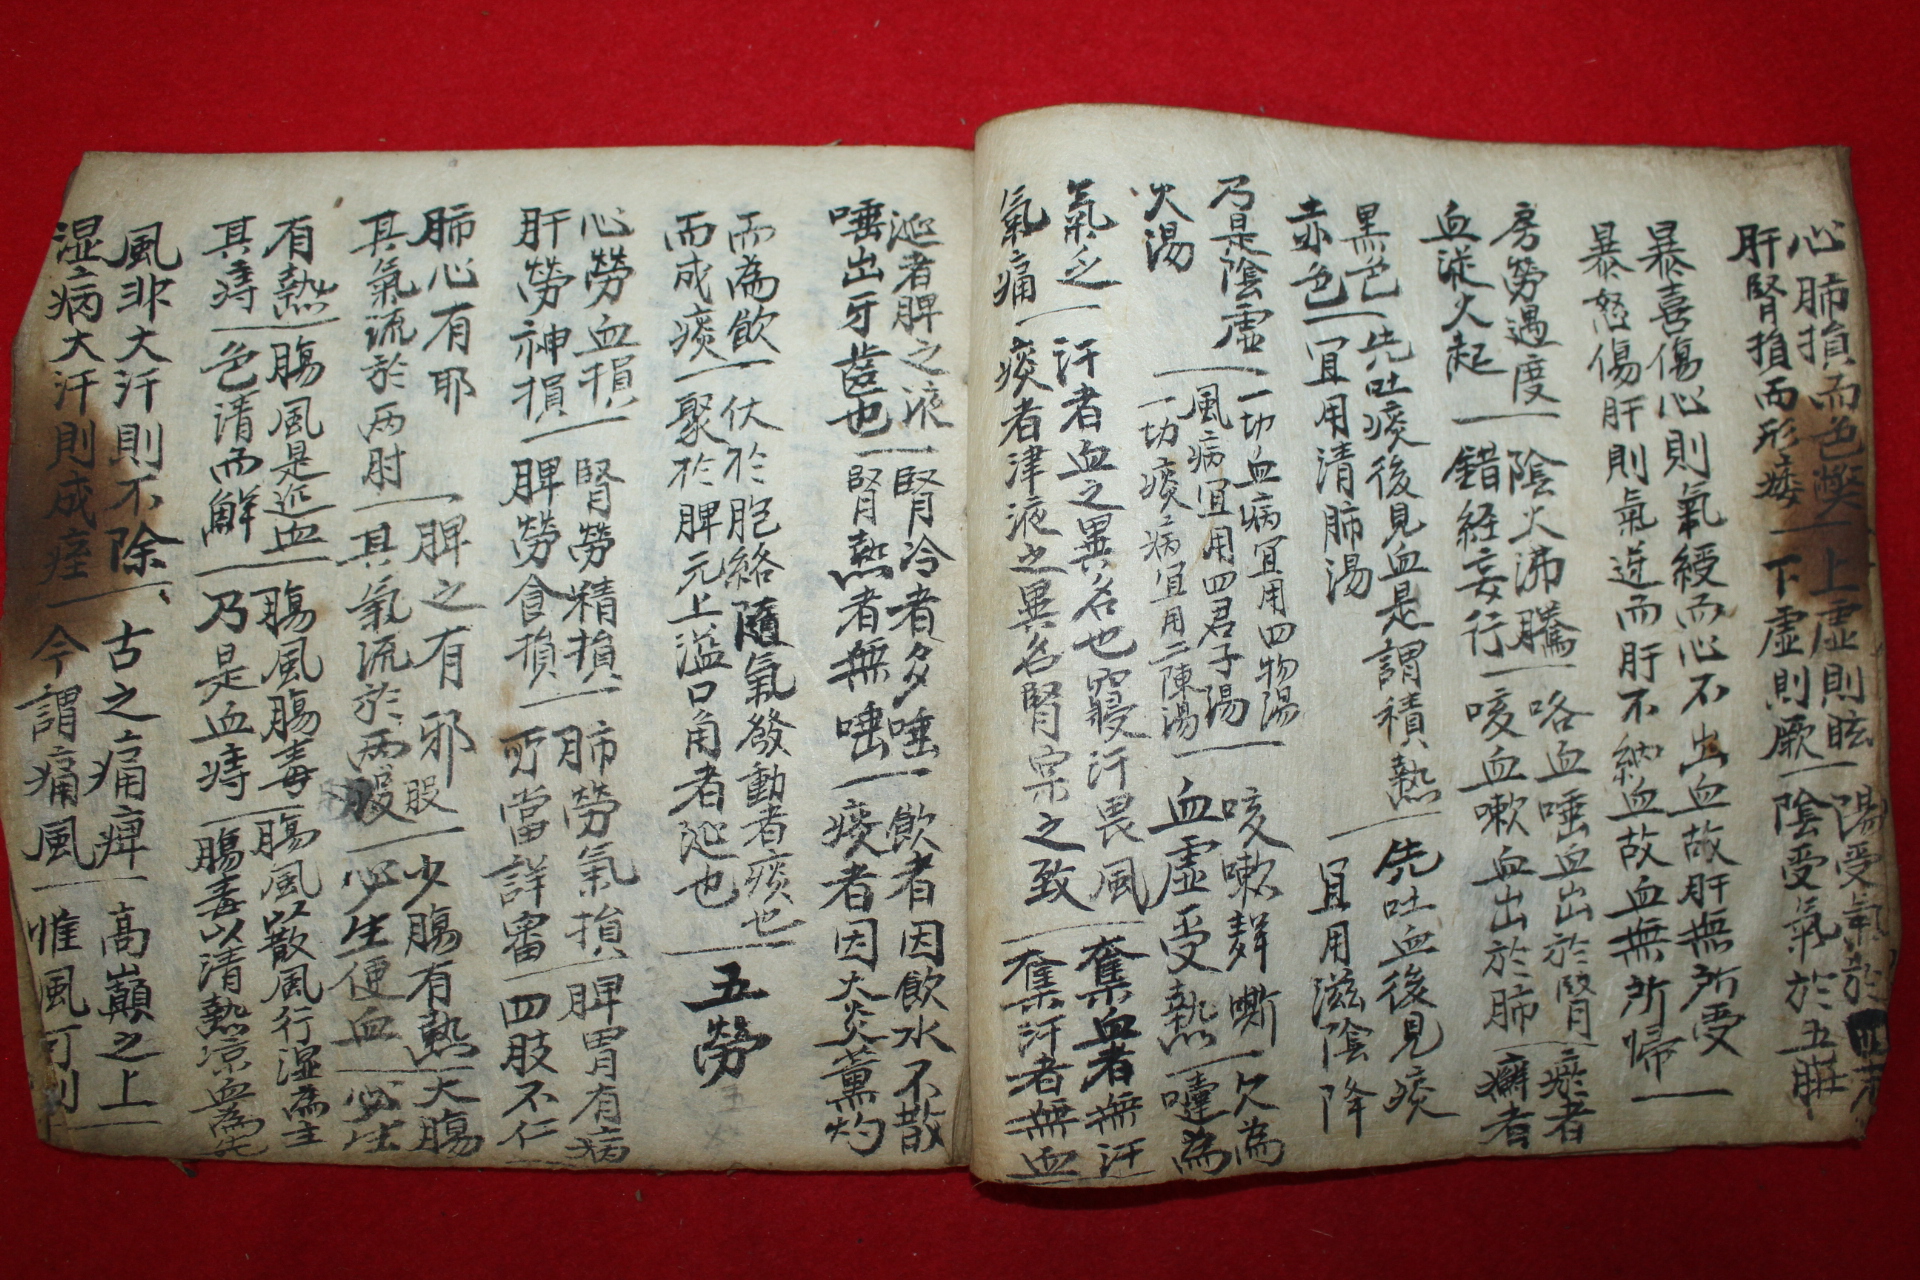 心肺損而色獘 上虛則眩 陽受氣於
肝腎損而形痿 下虛則厥 陰受氣於五臟
暴喜傷心則氣綬而心不出血故肝無所受
暴怒傷肝則氣逆而肝不納血故血無所帰
房勞過度 陰火沸騰 咯血唾血出於腎 瘀者
血從火起 錯経妄行 咳血嗽血出於肺 癖者
黑色 先吐痰後見血是謂積熱 先吐血後見痰
赤色 宜用清肺湯 宜用滋陰降
乃是陰虛 一切血病宜用四物湯 咳嗽聲嘶 欠為
風病宜用四君子湯
火湯 一切痰病宜用二陳湯 血虛受熱 嚏為
氣乏 汗者血之異名也寢汗畏風 奪血者無汗
氣痛 痰者津液之異名腎宗之致 奪汗者無血
涎者脾之液 腎冷者多唾 飲者因飲水不散
唾出牙齒也 腎熱者無唾 痰者因火炎薰灼
而為飲 伏於胞絡隨氣發動者痰也
而成痰 聚於脾元上溢口角者涎也 五勞
心勞血損 腎勞精損 肺勞氣損 脾胃有病
肝勞神損 脾勞食損 所當詳審 四肢不仁
肺心有耶 脾之有邪 股 少腸有熱 大腸
其氣流於两肘 其氣流於两股 必生便血 必生
有熱 腸風是近血 腸風腸毒 腸風以散風行湿為主
其痔 色清而鮮 乃是血痔 腸毒以清熱凉血為先
風非大汗則不除 古之痛痺 高巔之上
湿病大汗則成痓 今謂痛風 惟風可到